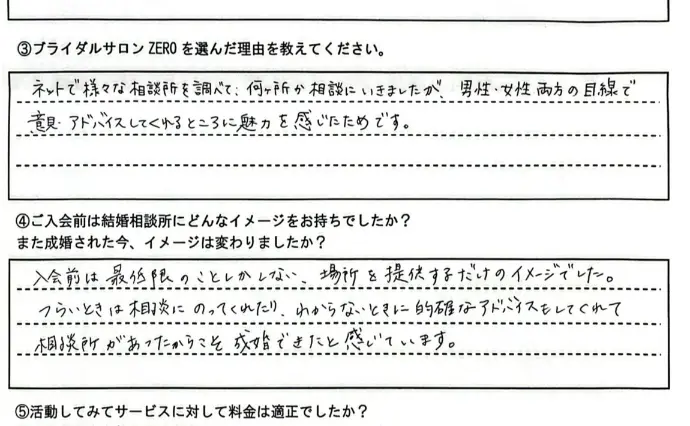 ③ブライダルサロン ZERO を選んだ理由を教えてください。
ネットで様々な相談所を調べて、何ヶ所か相談にいきましたが、男性・女性両方の目線で
意見・アドバイスしてくれるところに魅力を感じたためです。
④ご入会前は結婚相談所にどんなイメージをお持ちでしたか？
また成婚された今、イメージは変わりましたか？
入会前は最低限のことしかしない、場所を提供するだけのイメージでした。
つらいときは相談にのってくれたり、わからないときに的確なアドバイスもしてくれて
相談所があったからこそ成婚できたと感じています。
⑤活動してみてサービスに対して料金は適正でしたか？